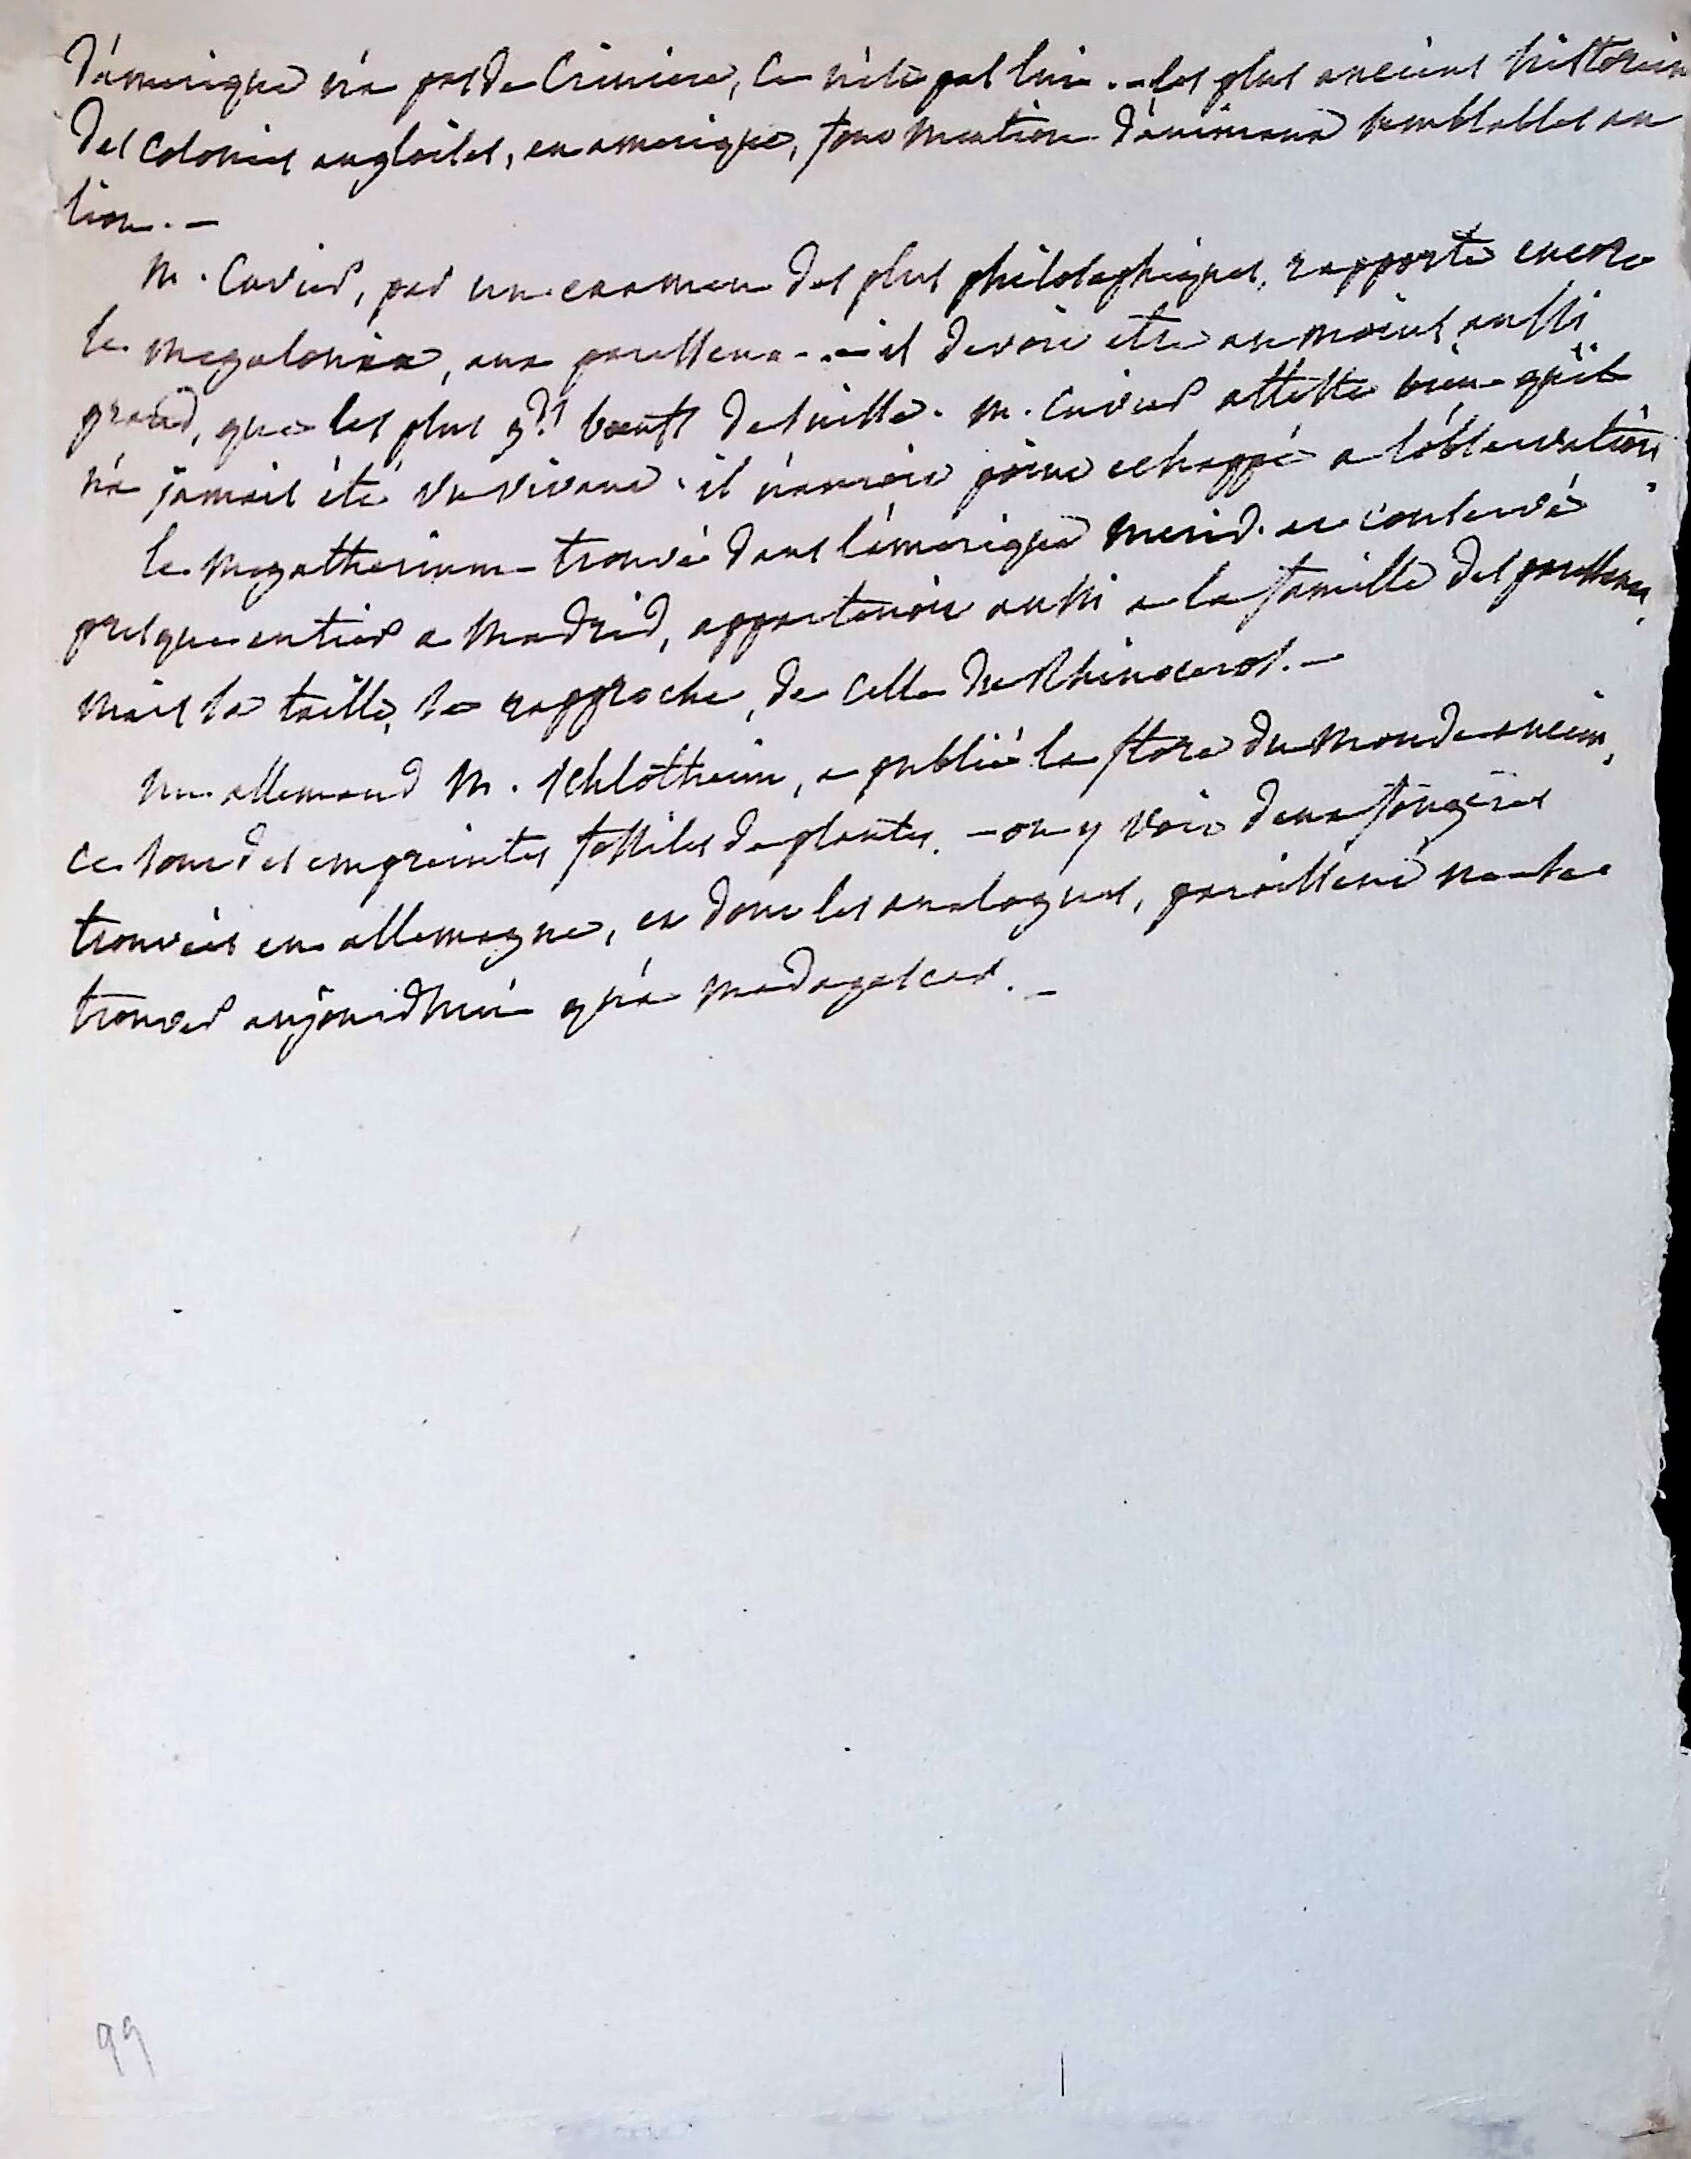 d'amerique n'a pas de criniere, ce n'est pas lui. - les plus anciens historiens
des colonies angloises, en amerique, font mention d'animaux semblables au
lion. -
M. Cuvier, par un examen des plus philosophiques, rapporte encore
le megalonix, aux paresseux. - il devoit etre au moins aussi
grand, que les plus gds boeufs de suisse. M. Cuvier atteste bien qu'il
n'a jamais été vu vivant. il n'auroit point echappé a l'observation.
le megatherium trouvé dans l'amerique merid. et conservé
presque entier a Madrid, appartenoit aussi a la famille des paresseux,
mais sa taille, le rapproche, de celle du Rhinoceros. -
un allemand M. Schlotheim, a publié la flore du monde ancien,
ce sont des empreintes fossiles de plantes. - on y voit deux fougères
trouvées en allemagne, et dont les analogues, paroissent ne se
trouver aujourdhui qu'a madagascar. -
99